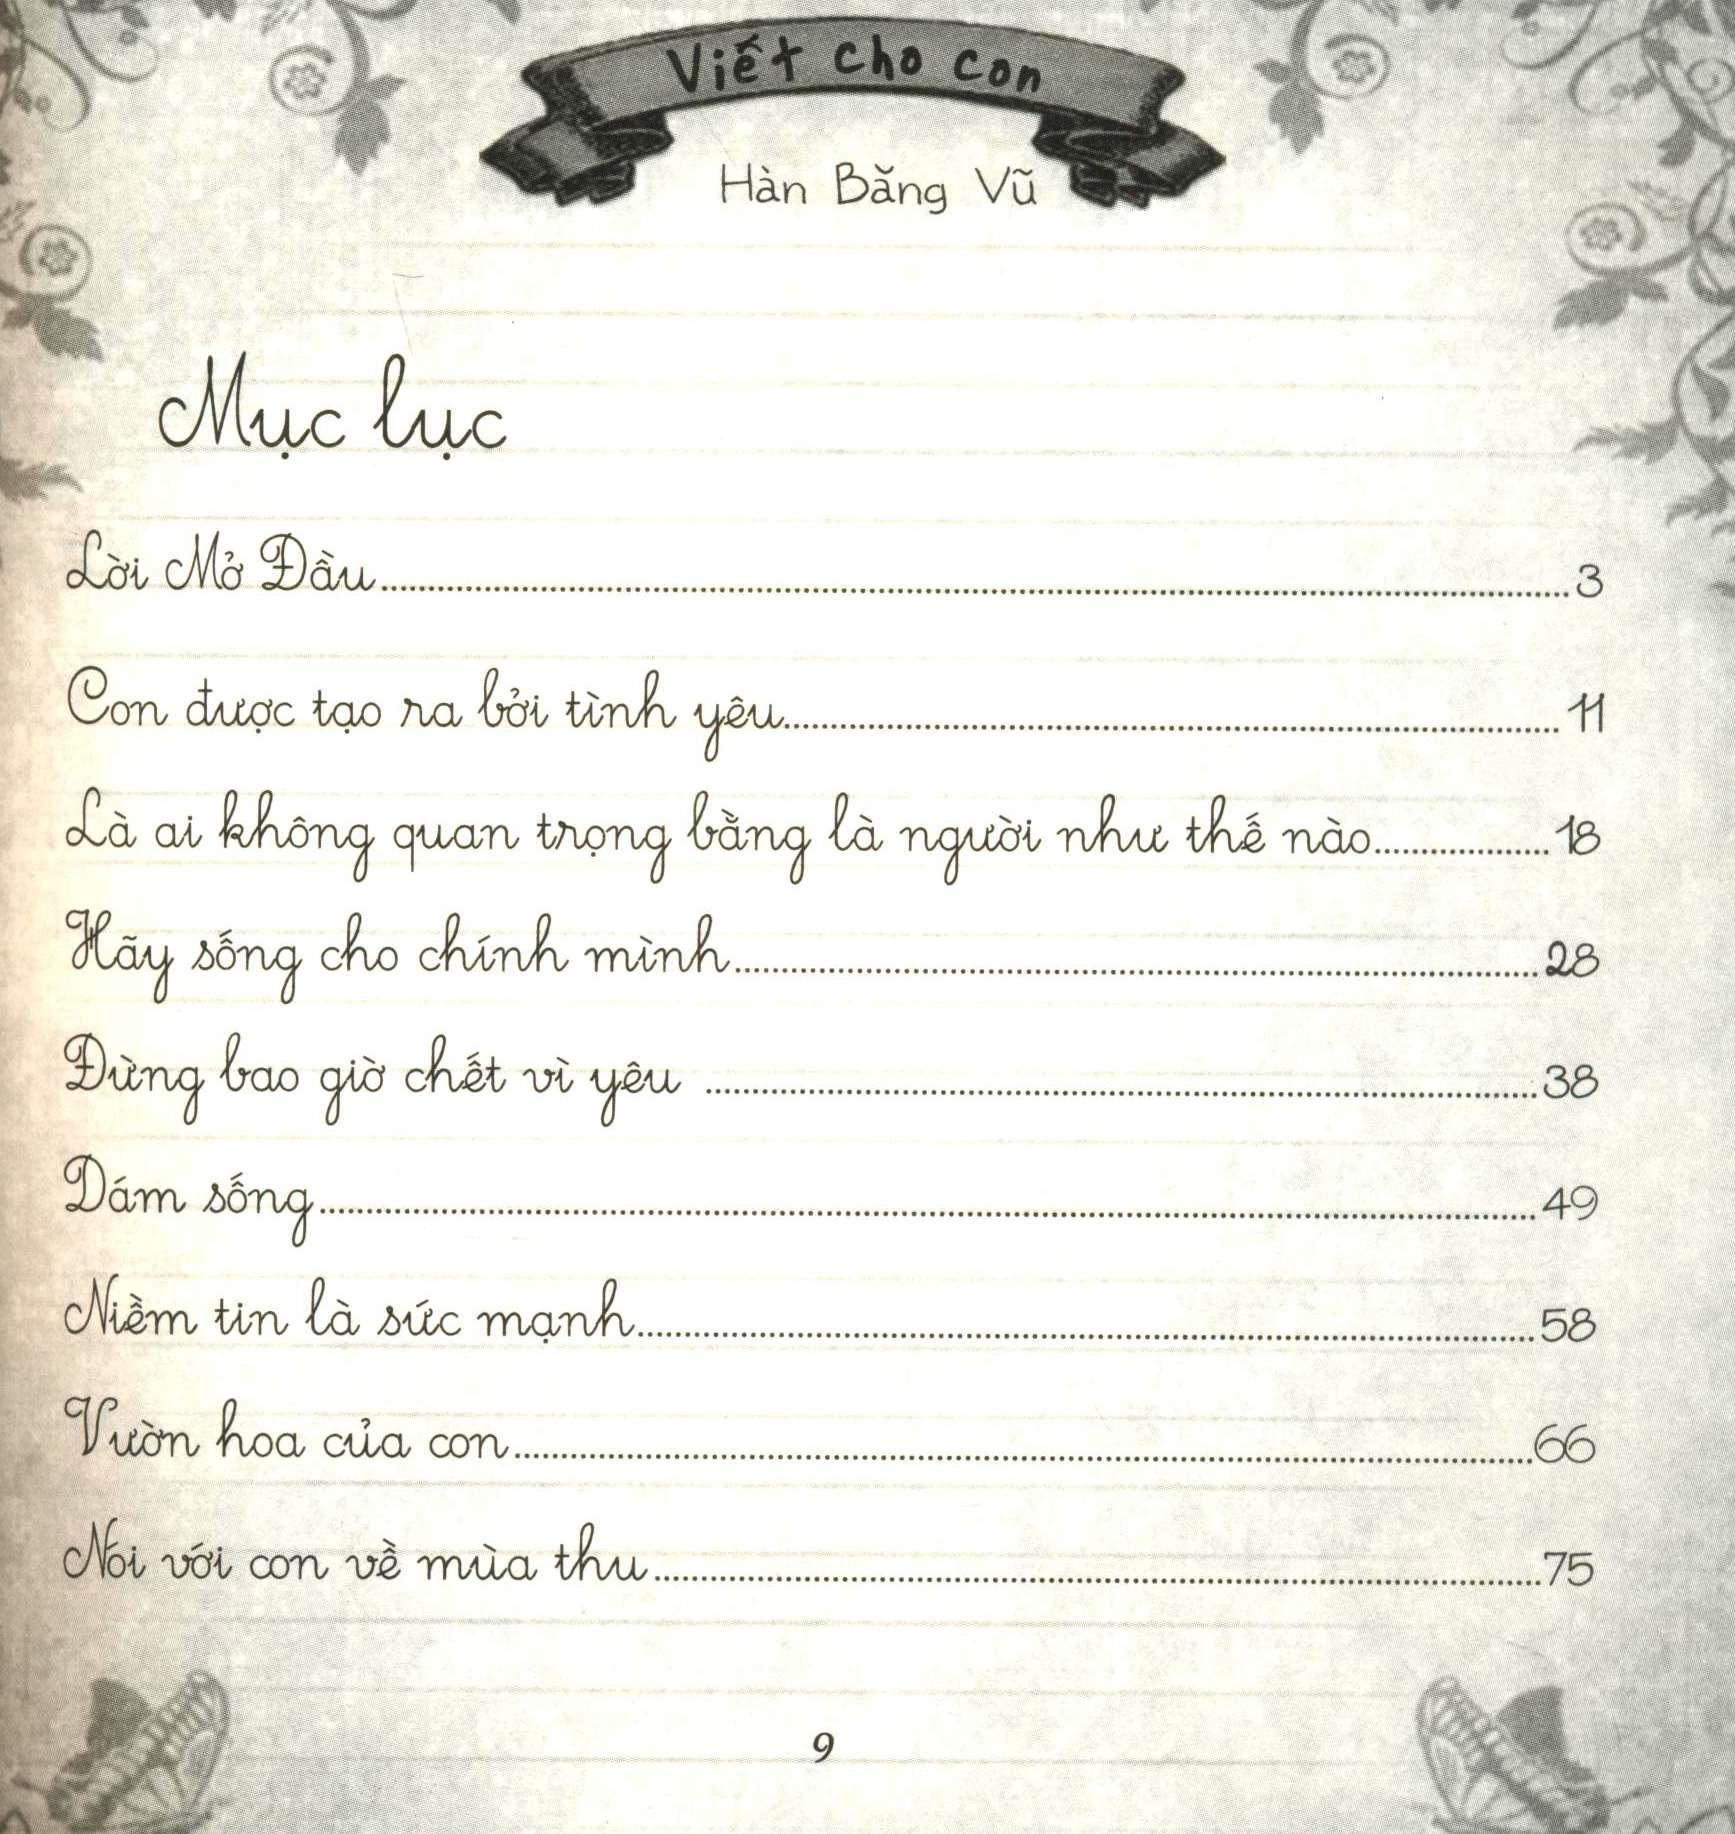 Viết cho con
Hàn Băng Vũ
Mục lục
Lời Mở Đầu........3
Con được tạo ra bởi tình yêu........11
Là ai không quan trọng bằng là người như thế nào........18
Hãy sống cho chính mình........28
Đừng bao giờ chết vì yêu ........38
Dám sống........49
Niềm tin là sức mạnh........58
Vườn hoa của con........66
Nói với con về mùa thu........75
9